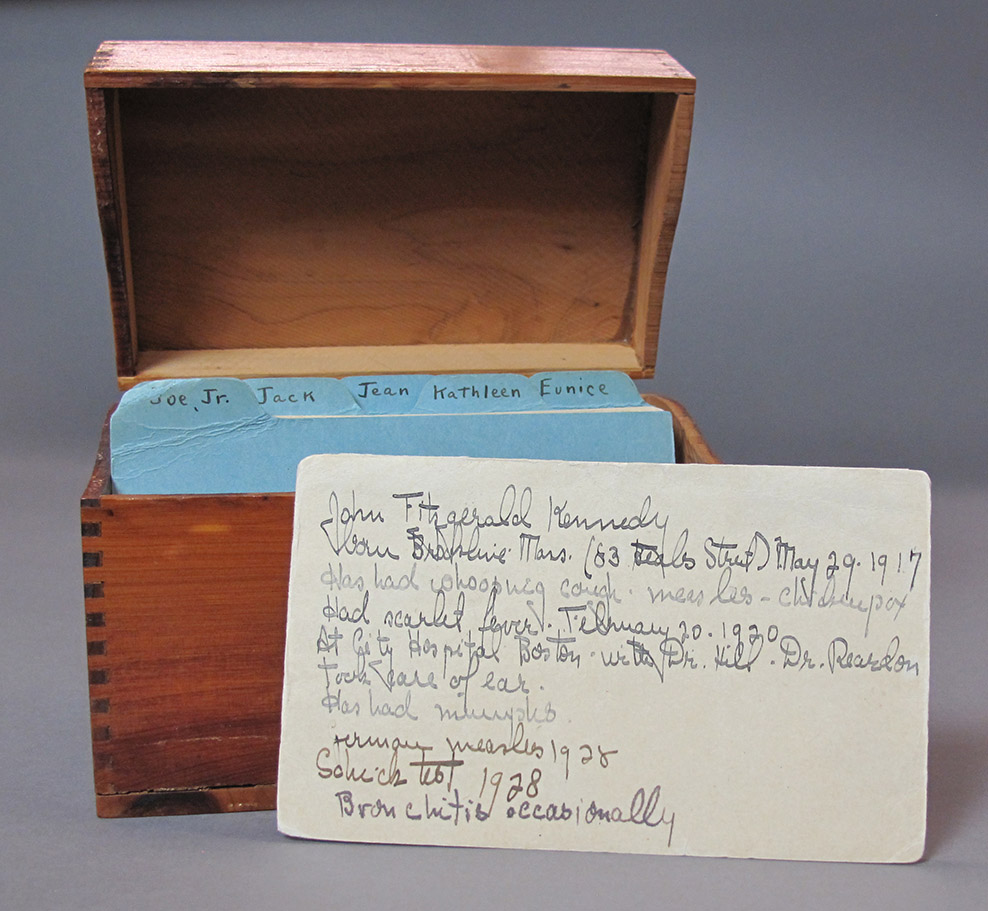 Joe, Jr. Jack Jean Kathleen Eunice
John Fitzgerald Kennedy
born Brookline Mass. (83 Beals Street) May 29. 1917
Has had whooping cough. measles - chickenpox
Had scarlet fever. February 20. 1920
At City Hospital Boston. with Dr. Hill. Dr. Reardon
took care of ear.
Has had mumps.
German measles 1928
Schick test 1928
Bronchitis occasionally